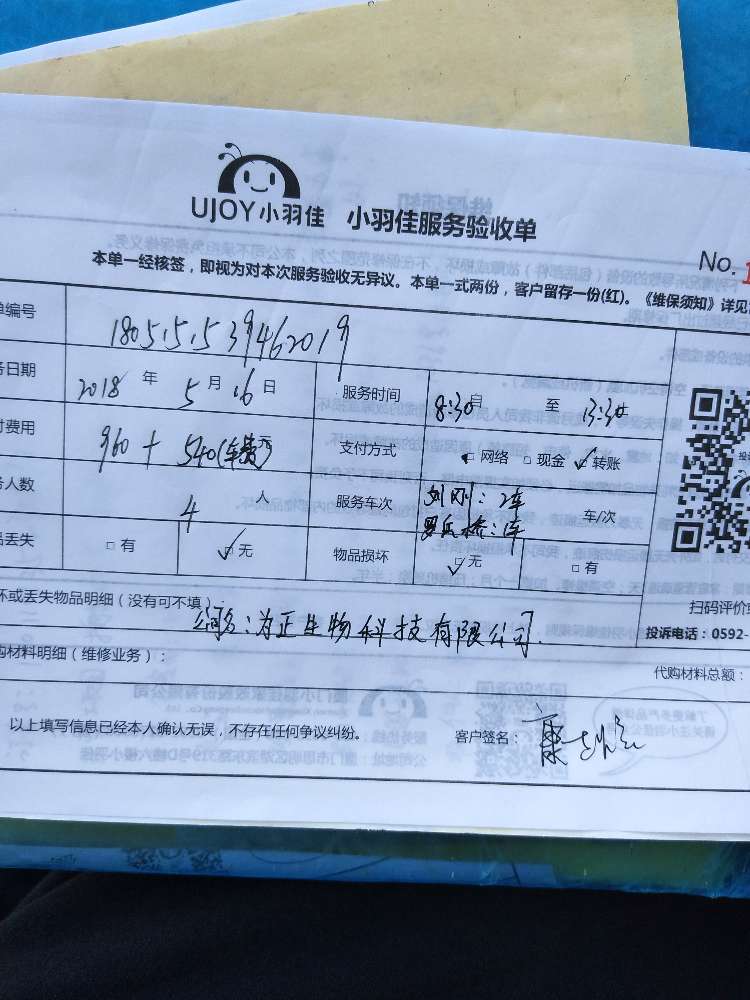 UJOY小羽佳 小羽佳服务验收单
No.1
本单一经核签，即视为对本次服务验收无异议。本单一式两份，客户留存一份(红)。《维保须知》详见
单编号 1805151539462019
务日期 2018 年 5 月 16 日 服务时间 8:30 自 至 13:30
付费用 960 + 540(车费) 元 支付方式 □ 网络 □ 现金 ☑ 转账
务人数 4 人 服务车次 刘刚：2车
1车 车/次
品丢失 □ 有 ☑ 无 物品损坏 ☑ 无 □ 有
坏或丢失物品明细（没有可不填）：
公司名：为正生物科技有限公司.
扫码评价
投诉电话：0592-
购材料明细（维修业务）：
代购材料总额：
以上填写信息已经本人确认无误，不存在任何争议纠纷。 客户签名：康